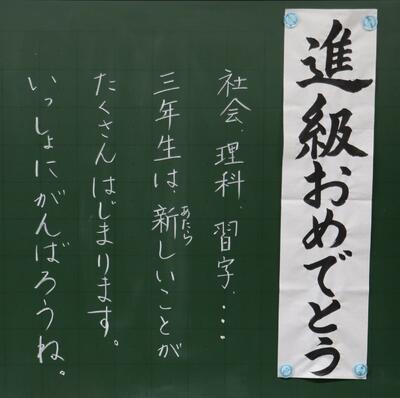 進級おめでとう
社会、理科、習字、・・・
三年生は、新しいことが
あたら
たくさんはじまります。
いっしょにがんばろうね。